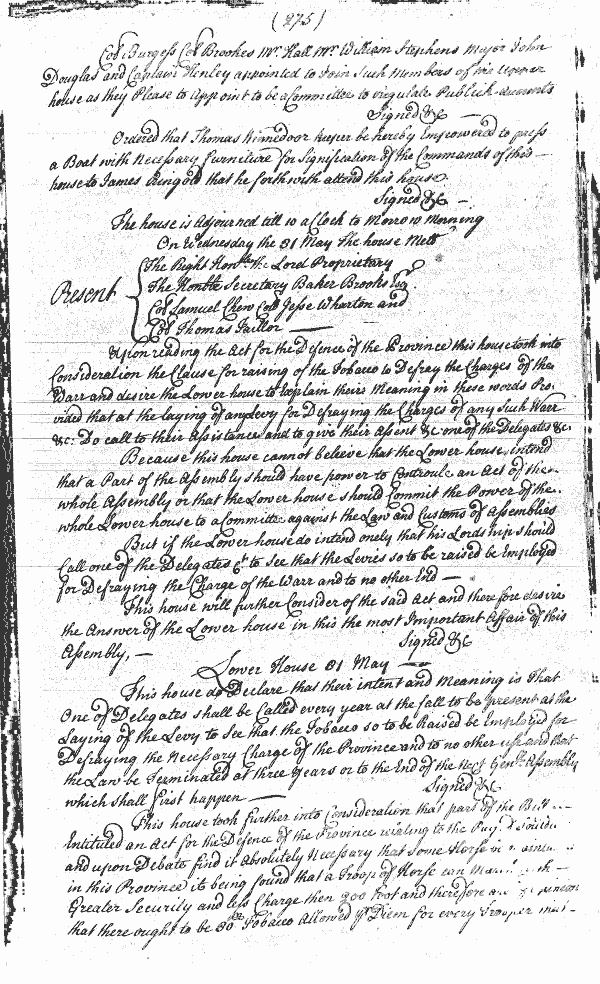 (275)
Col Burgess Col Brookes Mr. Hall Mr. William Stephens Major John
Douglas and Captain Henley appointed to Join Such Members of the upper
house as they Please to Appoint to be a Committee to regulate Publick Accounts
Signed &c
Ordered that Thomas Kinnedoor keeper be hereby Empowered to press
a Boat with Necessary furniture for Signification of the Commands of this
house to James Ringold that he forthwith attend this house
Signed &c
The house is Adjourned till 10 a Clock to Morrow Morning
On Wednesday the 31 May The house Mett
Present
The Right Honble the Lord Proprietary
The Honble Secretary Baker Brooks Esqr
Col Samuel Chew Col Jesse Wharton and
Col Thomas Taillor
Upon reading the Act for the Defence of the Province this house took into
Consideration the Clause for raising of the Tobacco to Defray the Charges of the
Warr and desire the Lower house to Explain theirs Meaning in these words Pro:
vided that at the laying of any Levy for Defraying the Charges of any Such Warr
&c: Do call to their Assistance and to give their Assent &c one of the Delegates &c
Because this house cannot beleeve that the Lower house intend
that a Part of the Assembly should have power to Controule an Act of the
whole Assembly or that the Lower house should Commit the Power of the
whole Lower house to a Committe against the Law and Customs of Assemblies
But if the Lower house do intend onely that his Lordship should
Call one of the Delegates to See that the Levies so to be raised be Employed
for Defraying the Charge of the Warr and to no other End
This house will further Consider of the said Act and therefore desire
the Answer of the Lower house in this the most Important Affair of this
Assembly,
Signed &c
Lower House 31 May
This house do Declare that their intent and Meaning is That
One of Delegates shall be Called every year at the fall to be present at the
Laying of the Levy to See that the Tobacco so to be Raised be Employed for
Defraying the Necessary Charge of the Province and to no other use and that
the Law be Terminated at three Years or to the End of the Next Genll Assembly
which shall first happen
Signed &c
This house took further into Consideration that part of the Bill
Entituled an Act for the Defence of the Province relating to the
and upon Debate find it Absolutely Necessary that some Horse
in this Province it being found that a Troop of Horse can
Greater Security and less Charge then 200 foot and therefore are
that there ought to be Tobacco Allowed Diem for every Trooper